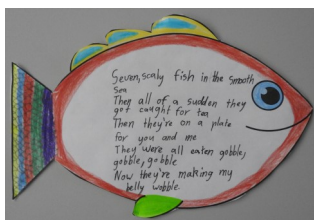 Seven, scaly fish in the smooth
sea
Then all of a sudden they
got caught for tea
Then they're on a plate
for you and me
They were all eaten gobble,
gobble, gobble
Now they're making my
belly wobble.